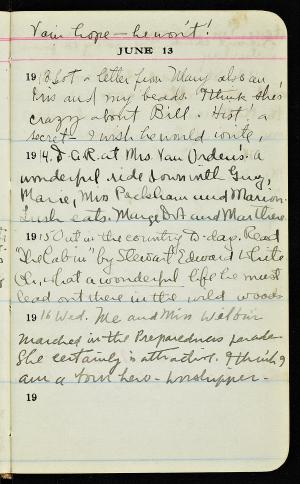 Vain hope – he won't!
JUNE 13
1913 Got a letter from Mary also an
Iris and my beads. I think she's
crazy about Bill. Hist! a
secret – I wish he would write,
1914. D.A.R. at Mrs. Van Orden's. a
wonderful ride down with Guy,
Marie, Mrs Peckham and Marion.
Lush eats. Marge Dot and Mar there.
1915 Out in the country to-day. Read
"The Cabin" by Stewart Edward White
Oh, what a wonderful life he must
lead out there in the wild woods
1916 Wed. Me and Miss Wilbur
marched in the Preparedness parade
She certainly is attractive. I think I
am a born hero-worshipper –
19